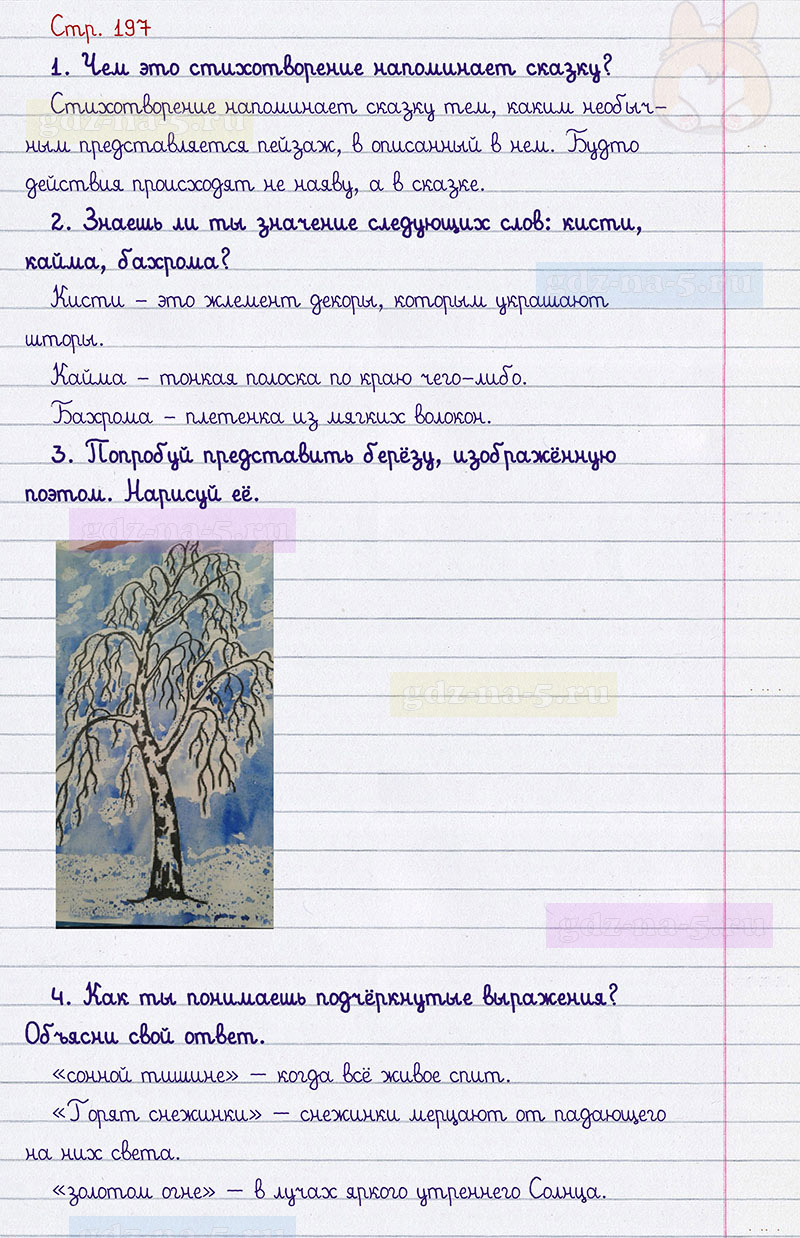 Стр. 197
1. Чем это стихотворение напоминает сказку?
Стихотворение напоминает сказку тем, каким необыч-
gdz-na-5.ru
ным представляется пейзаж, в описанный в нем. Будто
действия происходят не наяву, а в сказке.
2. Знаешь ли ты значение следующих слов: кисти,
кайма, бахрома?
gdz-na-5.ru
Кисти – это жлемент декоры, которым украшают
шторы.
Кайма – тонкая полоска по краю чего-либо.
Бахрома – плетенка из мягких волокон.
3. Попробуй представить берёзу, изображённую
поэтом. Нарисуй её.
gdz-na-5.ru
gdz-na-5.ru
gdz-na-5.ru
4. Как ты понимаешь подчёркнутые выражения?
Объясни свой ответ.
«сонной тишине» – когда всё живое спит.
«Горят снежинки» – снежинки мерцают от падающего
на них света.
«золотом огне» – в лучах яркого утреннего Солнца.
gdz-na-5.ru